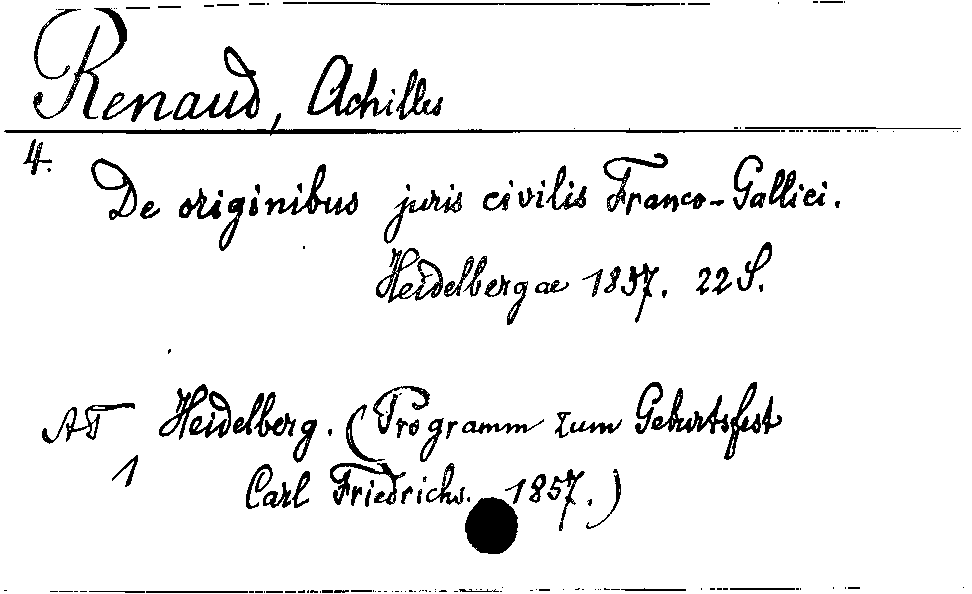 Renaud, Achilles
4.
De originibus juris civilis Franco-Gallici.
Heidelbergae 1857. 22 S.
AT Heidelberg. (Programm zum Geburtsfest
1 Carl Friedrichs. 1857.)